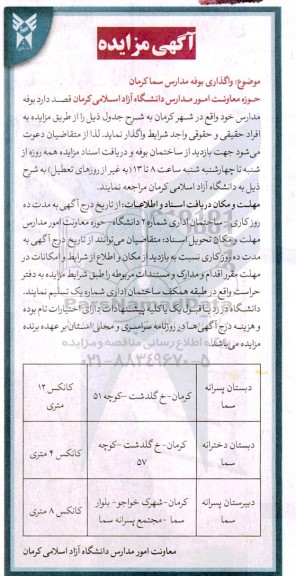 آگهی مزایده
موضوع: واگذاری بوفه مدارس سما کرمان
حوزه معاونت امور مدارس دانشگاه آزاد اسلامی کرمان قصد دارد بوفه
مدارس خود واقع در شهر کرمان به شرح جدول ذیل را از طریق مزایده به
افراد حقیقی و حقوقی واجد شرایط واگذار نماید. لذا از متقاضیان دعوت
می‌شود جهت بازدید از ساختمان بوفه و دریافت اسناد مزایده همه روزه از
شنبه تا چهارشنبه ساعت ۸ تا ۱۳ (به غیر از روزهای تعطیل) به شرح
ذیل به دانشگاه آزاد اسلامی کرمان مراجعه نمایند.
مهلت و مکان دریافت اسناد و اطلاعات: از تاریخ درج آگهی به مدت ده
روز کاری - ساختمان اداری شماره ۲ دانشگاه - حوزه معاونت امور مدارس
مهلت و مکان تحویل اسناد: متقاضیان می‌توانند از تاریخ درج آگهی به
مدت ده روز کاری نسبت به بازدید از مکان و اطلاع از شرایط و امکانات در
مهلت مقرر اقدام و مدارک و مستندات مربوطه را طبق شرایط مزایده به دفتر
حراست واقع در طبقه همکف ساختمان اداری شماره یک تسلیم نمایند.
دانشگاه در رد یا قبول یک یا کلیه پیشنهادات دارای اختیارات تام بوده
و هزینه درج آگهی‌ها در روزنامه سراسری و محلی استان بر عهده برنده
مزایده می‌باشد.
۰۲۱-۸۸۳۴۹۶۷۰-۵
دبستان پسرانه سما | کرمان-خ گلدشت -کوچه ۵۱ | کانکس ۱۲ متری
دبستان دخترانه سما | کرمان-خ گلدشت -کوچه ۵۷ | کانکس ۴ متری
دبیرستان پسرانه سما | کرمان-شهرک خواجو- بلوار سما -مجتمع پسرانه سما | کانکس ۸ متری
معاونت امور مدارس دانشگاه آزاد اسلامی کرمان